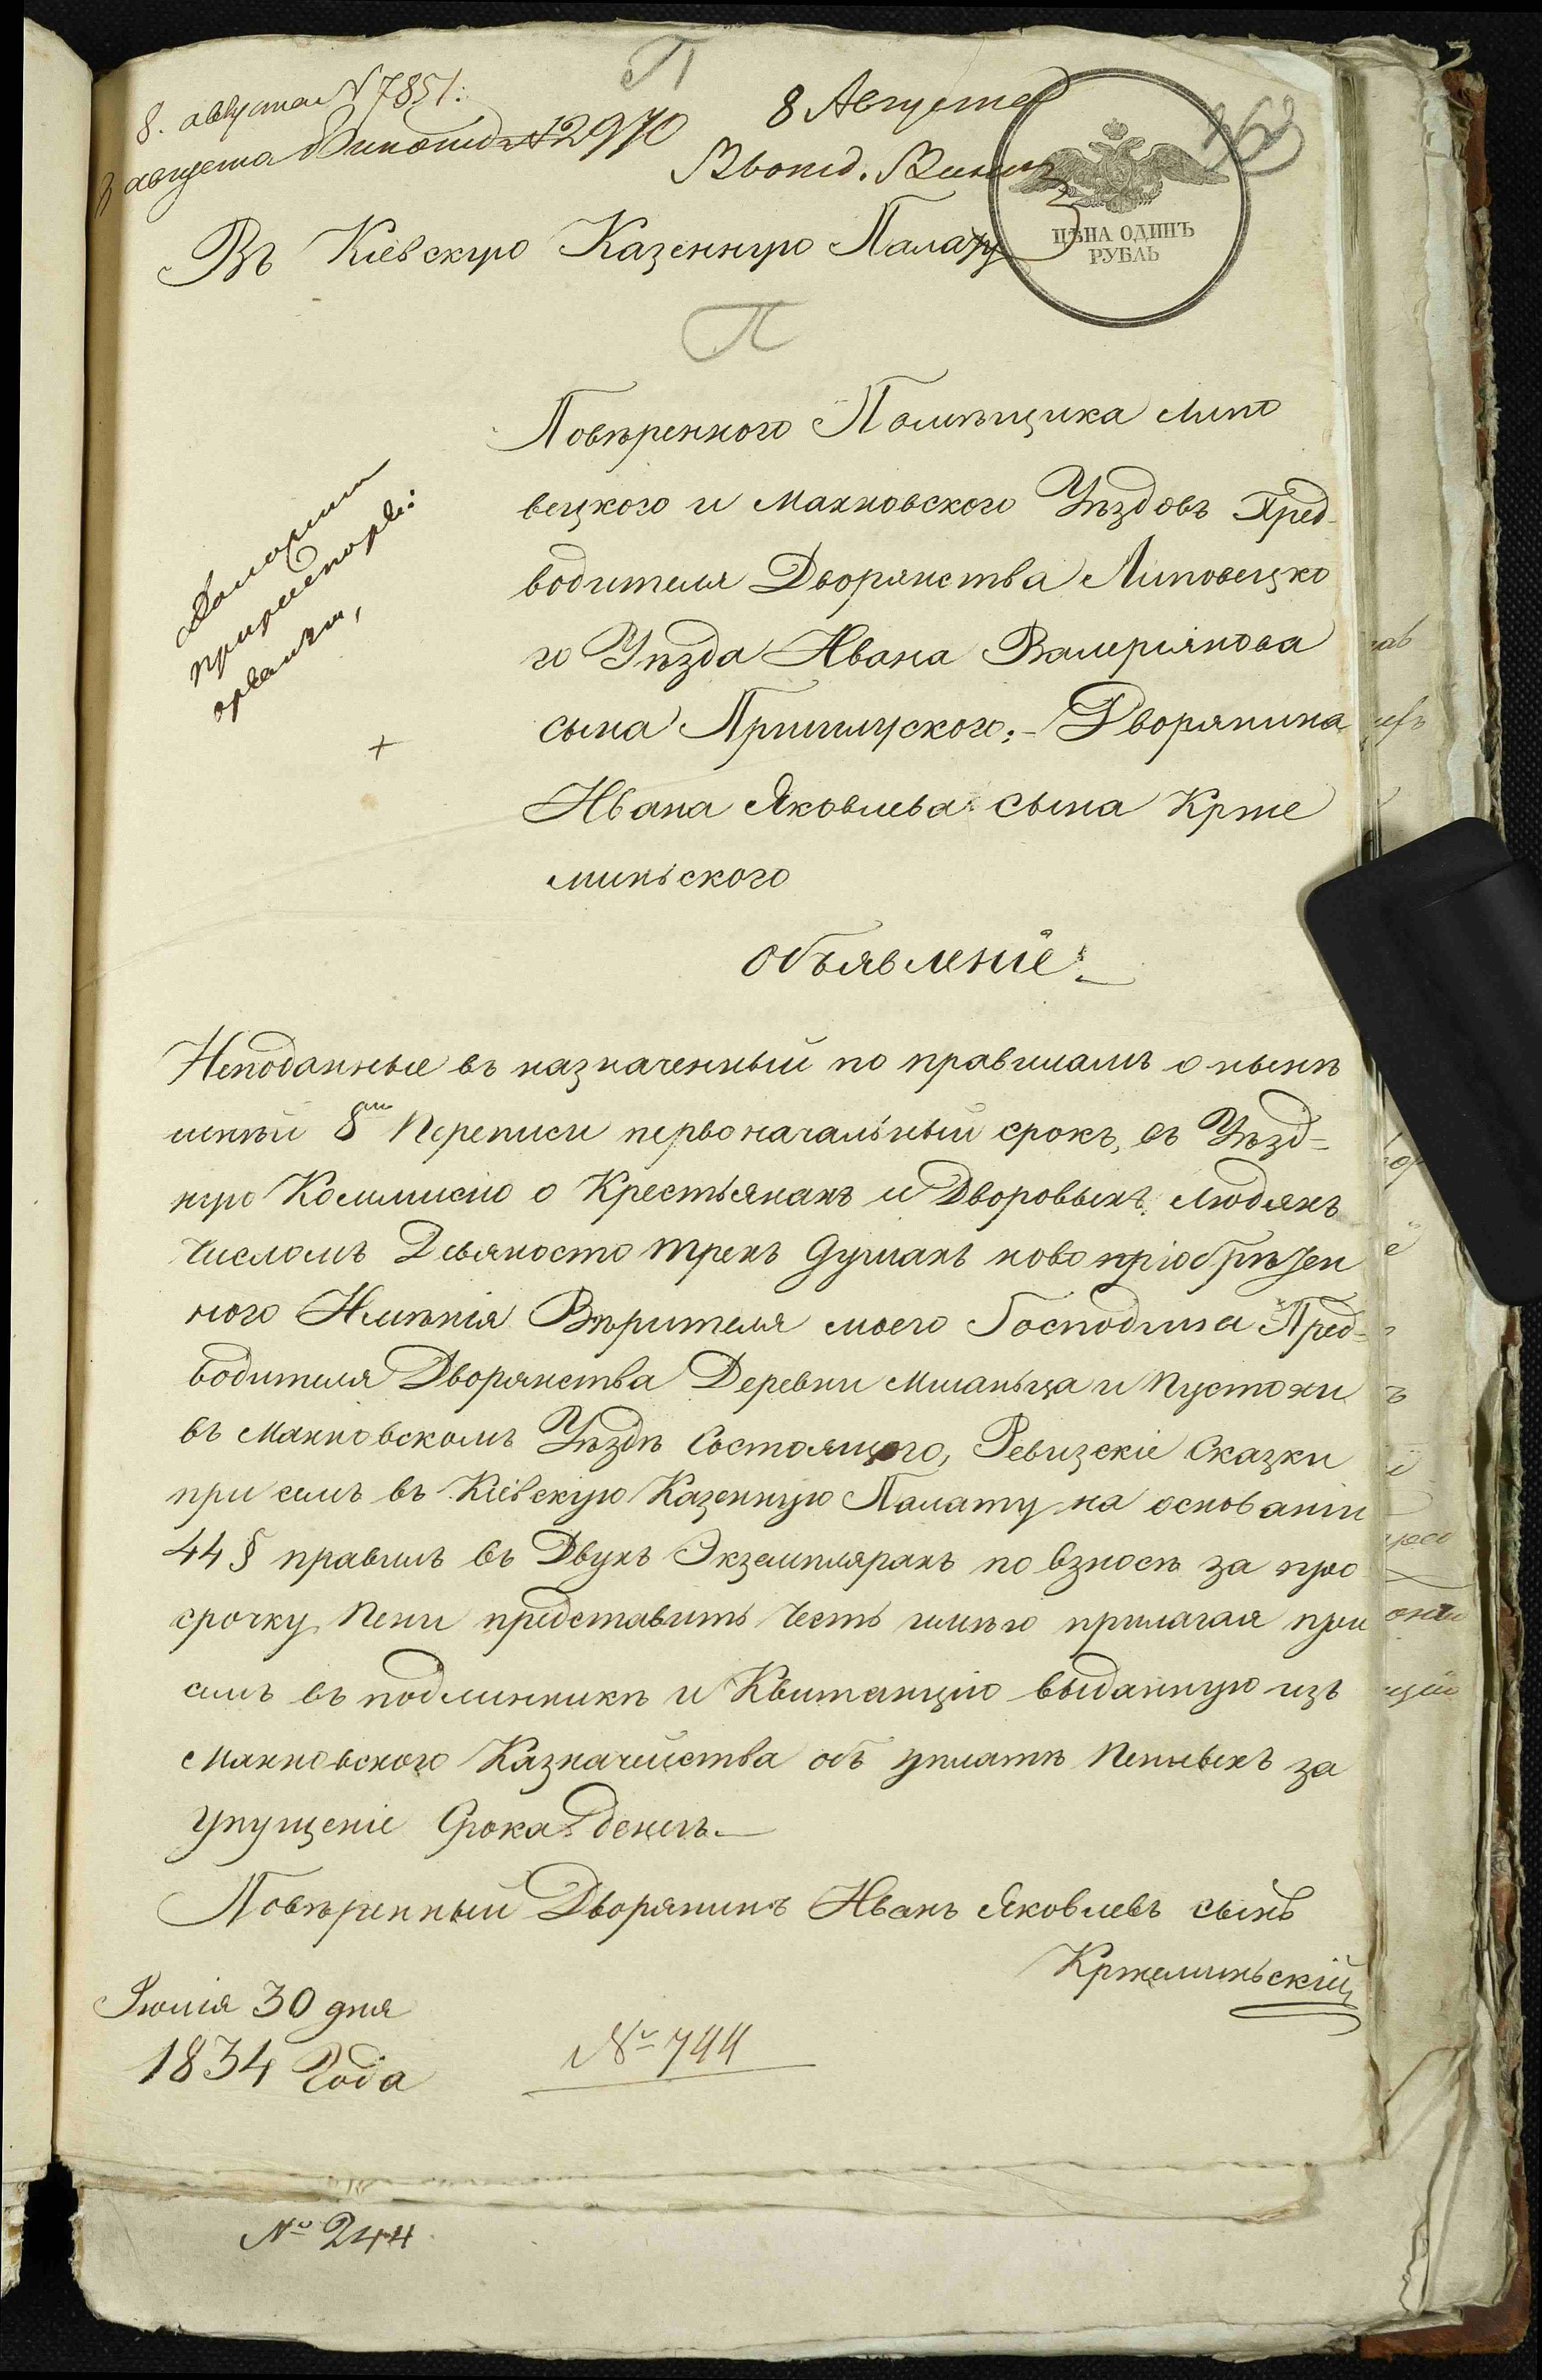 8. августа №7851.
августа №2970
8 Августа
Въ Кіевскую Казенную Палату
ЦѢНА ОДИНЪ
РУБЛЬ
П
Повѣренного Помѣщика Липо
вецкого и Махновского Уѣздовъ Пред-
водителя Дворянства Липовецко
го Уѣзда Ивана Валеріянова
сына Пришлуского;- Дворянина
Ивана Яковлева сына Крже
миньского
объявленіе:
Неподанные въ назначенный по правиламъ о нынѣ
шнѣй 8ой Переписи первоначальный срокъ, въ Уѣзд=
ную Коммисію о Крестьянахъ и Дворовыхъ людяхъ
числомъ Девяносто трехъ душахъ ново пріобрѣтен
ного Имѣнія Вѣрителя моего Господина Пред=
водителя Дворянства Деревни Мшаньца и Пустохи
въ Махновскомъ Уѣздѣ Состоящого, Ревизскіе Сказки
при семъ въ Кіевскую Казенную Палату на основаніи
44 § правилъ въ Двухъ Экземплярахъ по взносѣ за про
срочку Пени представить честь имѣю прилагая при
семъ въ подлинникѣ и Квитанцію выданную изъ
Махновского Казначейства объ уплатѣ Пеныхъ за
упущеніе Срока денегъ.—
Повѣренный Дворянинъ Иванъ Яковлевъ сынъ
Кржеминьскій
Іюлія 30 дня
1834 Года
№ 744
№ 244